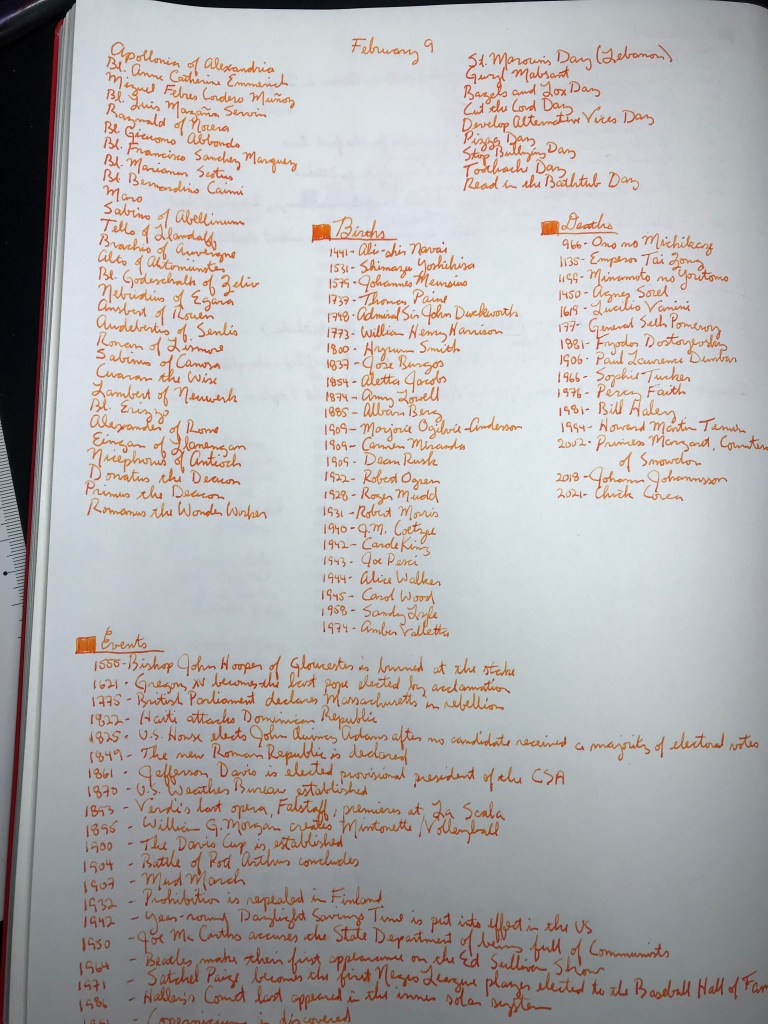 February 9
Apollonia of Alexandria
Bl. Anne Catherine Emmerich
Miguel Febres Cordero Muñoz
Bl. Luis Magaña Servin
Raynald of Nocera
Bl. Giacomo Abbondo
Bl. Francisco Sanchez Marquez
Bl. Marianus Scotus
Bl. Bernardino Caimi
Maro
Sabino of Abellinum
Teilo of Llandaff
Brachio of Auvergne
Alto of Altomünster
Bl. Godeschalk of Zeliv
Nebridius of Egara
Ansbert of Rouen
Audebertus of Senlis
Ronan of Lismore
Sabinus of Canosa
Cuaran the Wise
Lambert of Neuwerk
Bl. Erizzo
Alexander of Rome
Eingan of Llanengan
Nicephorus of Antioch
Donatus the Deacon
Primus the Deacon
Romanus the Wonder Worker
St. Maroun's Day (Lebanon)
Gwyl Mabsant
Bagels and Lox Day
Cut the Cord Day
Develop Alternative Vices Day
Pizza Day
Stop Bullying Day
Toothache Day
Read in the Bathtub Day
Births
1441- Ali-shir Navai
1531- Shimazu Yoshihisa
1579- Johannes Meursius
1737- Thomas Paine
1748- Admiral Sir John Duckworth
1773- William Henry Harrison
1800- Hyrum Smith
1837- Jose Burgos
1854- Aletta Jacobs
1874- Amy Lowell
1885- Alban Berg
1909- Marjorie Ogilvie-Anderson
1909- Carmen Miranda
1909- Dean Rusk
1922- Robert Ogren
1928- Roger Mudd
1931- Robert Morris
1940- J.M. Coetzee
1942- Carole King
1943- Joe Pesci
1944- Alice Walker
1945- Carol Wood
1958- Sandy Lyle
1974- Amber Valletta
Deaths
966- Ono no Michikaze
1135- Emperor Tai Zong
1199- Minamoto no Yoritomo
1450- Agnes Sorel
1619- Lucilio Vanini
177- General Seth Pomeroy
1881- Fyodor Dostoyevsky
1906- Paul Laurence Dunbar
1966- Sophie Tucker
1976- Percy Faith
1981- Bill Haley
1994- Howard Martin Temin
2002- Princess Margaret, Countess
of Snowdon
2018- Johann Johannsson
2021- Chick Corea
Events
1555- Bishop John Hooper of Gloucester is burned at the stake
1621- Gregory XV becomes the last pope elected by acclamation
1775- British Parliament declares Massachusetts in rebellion
1822- Haiti attacks Dominican Republic
1825- U.S. House elects John Quincy Adams after no candidate received a majority of electoral votes
1849- The new Roman Republic is declared
1861- Jefferson Davis is elected provisional president of the CSA
1870- U.S. Weather Bureau established
1893- Verdi's last opera, Falstaff, premieres at La Scala
1895- William G. Morgan creates Mintonette/Volleyball
1900- The Davis Cup is established
1904- Battle of Port Arthur concludes
1907- Mud March
1932- Prohibition is repealed in Finland
1942- Year-round Daylight Savings Time is put into effect in the US
1950- Joe McCarthy accuses the State Department of being full of Communists
1964- Beatles make their first appearance on the Ed Sullivan Show
1971- Satchel Paige becomes the first Negro League player elected to the Baseball Hall of Fam
1986- Halley's Comet last appeared in the inner solar system
- Copernicium is discovered